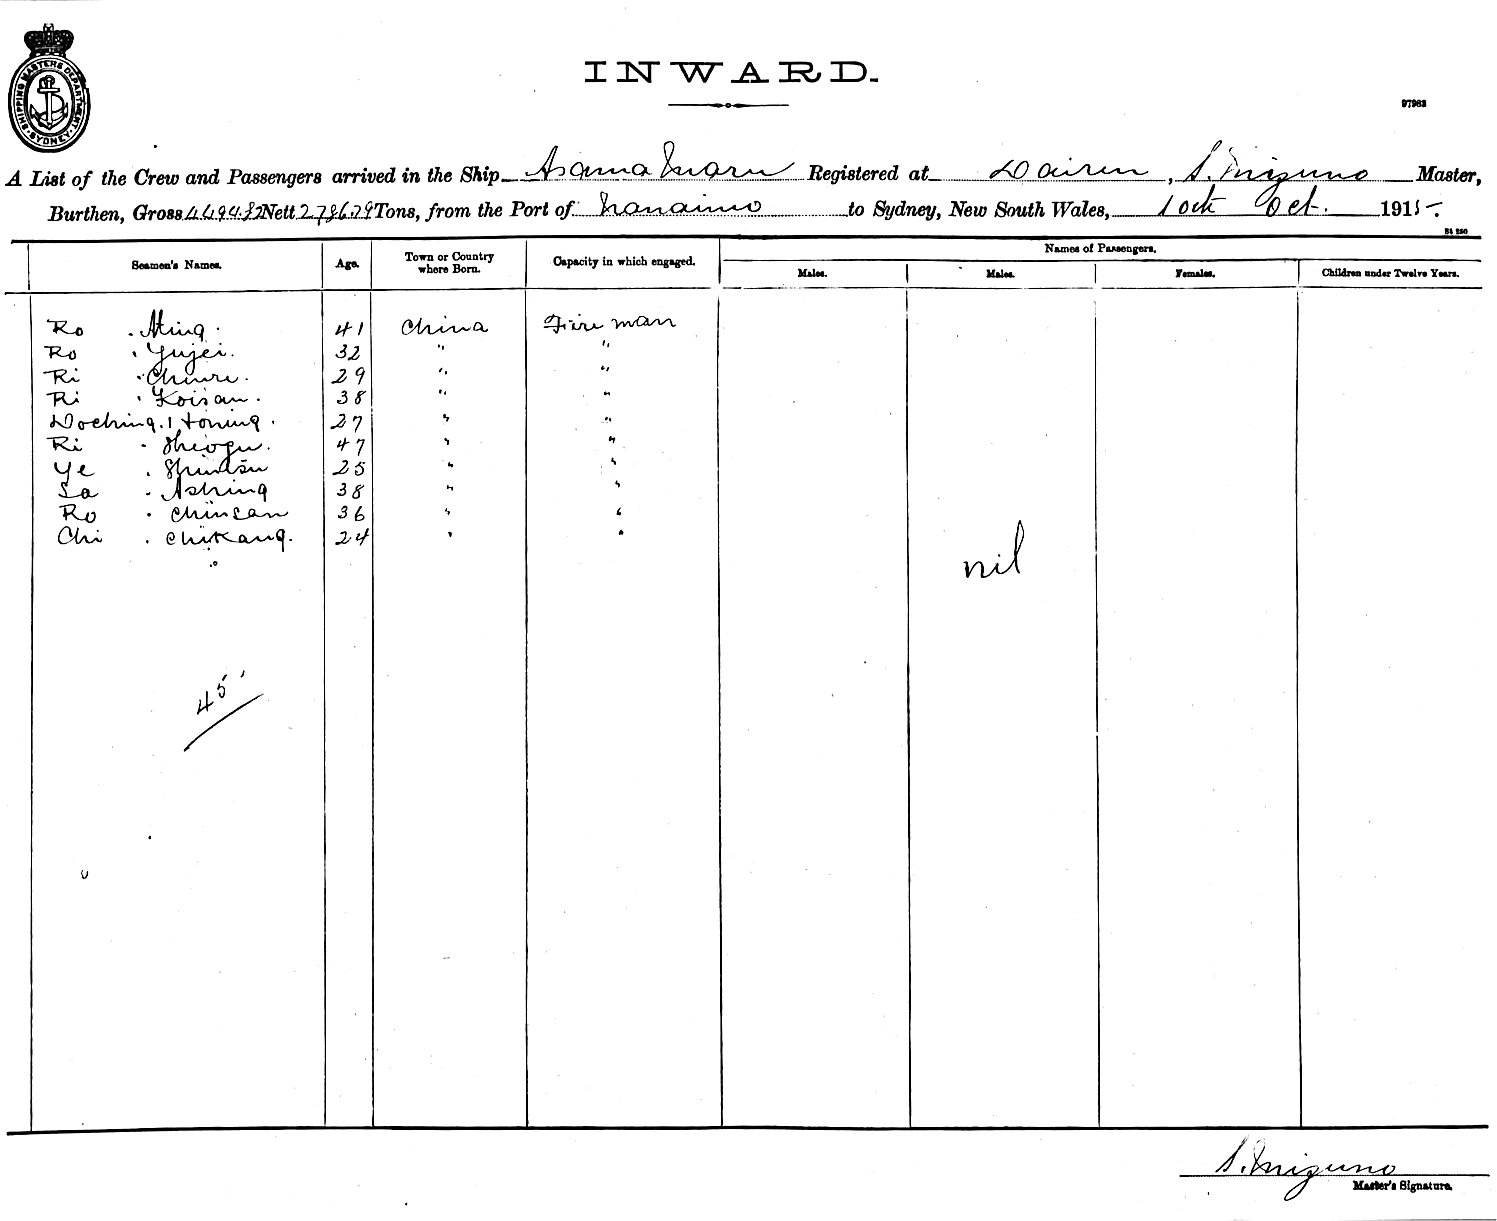 SHIPPING MASTERS DEPARTMENT SYDNEY
INWARD.
97963
A List of the Crew and Passengers arrived in the Ship Asama Maru Registered at Dairen, S. Mizuno Master,
Burthen, Gross 4494.82 Nett 2786.79 Tons, from the Port of Nanaimo to Sydney, New South Wales, 10th Oct. 1915.
Seamen's Names. Age. Town or Country where Born. Capacity in which engaged. Names of Passengers.
Males. Males. Females. Children under Twelve Years.
Ro . Ating . 41 China Fire man
Ro . Yujei . 32 " "
Ri . Chiure . 29 " "
Ri . Koisan . 38 " "
Doching . 27 " "
Ri . Sheogu . 47 " "
Ye . 25 " "
Sa . Ashing 38 " "
Ro . Chinsan 36 " "
Chi . Chikang . 24 " "
nil
45
S. Mizuno
Master's Signature.